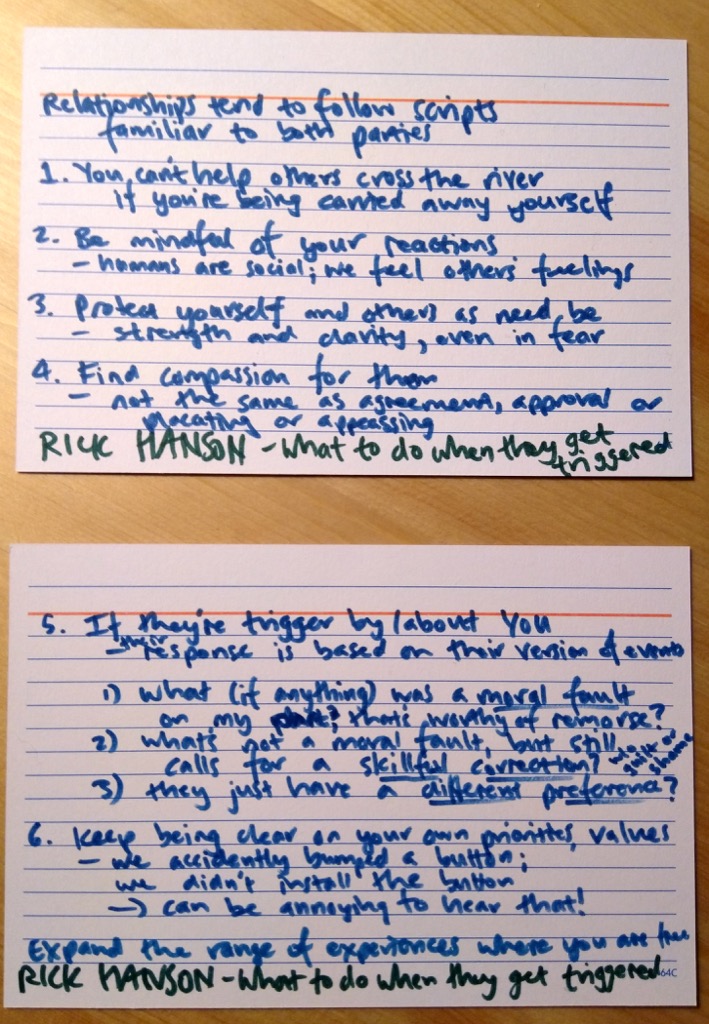 Relationships tend to follow scripts
familiar to both parties
1. You can't help others cross the river
if you're being carried away yourself
2. Be mindful of your reactions
- humans are social; we feel others' fuelings
3. Protect yourself and others as need be
- strength and clarity, even in fear
4. Find compassion for them
- not the same as agreement, approval or
placating or appeasing
RICK HANSON - What to do when they get
triggered
5. If they're trigger by/about You
→ their response is based on their version of events
1) what (if anything) was a moral fault
on my part? that's worthy of remorse?
2) whats not a moral fault, but still
calls for a skillful correction? w/o
guilt or
shame
3) they just have a different preference?
6. Keep being clear on your own priorities, values
- we accidently bumped a button;
we didn't install the button
→ can be annoying to hear that!
Expand the range of experiences where you are free
RICK HANSON - What to do when they get triggered
64C